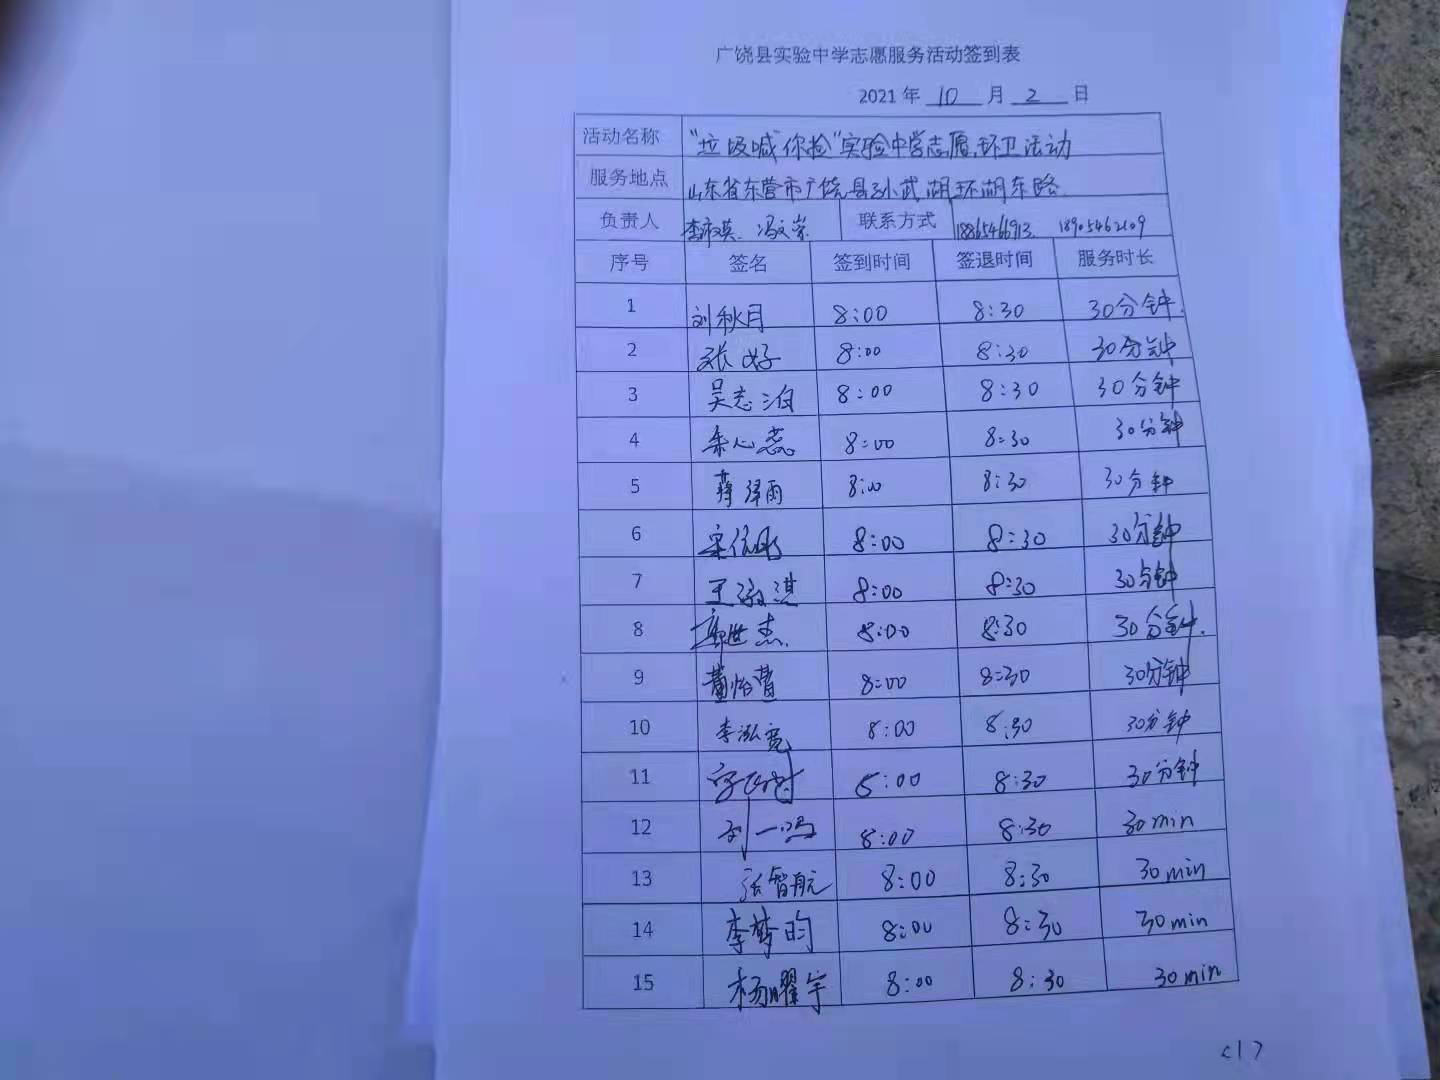 广饶县实验中学志愿服务活动签到表
2021 年 10 月 2 日
活动名称 “垃圾喊你捡”实验中学志愿环卫活动
服务地点 山东省东营市广饶县孙武湖环湖东路
负责人 冯文 联系方式 18865466913. 18905462109
序号 签名 签到时间 签退时间 服务时长
1 刘秋月 8:00 8:30 30分钟.
2 张好 8:00 8:30 30分钟
3 吴志泊 8:00 8:30 30分钟
4 心蕊 8:00 8:30 30分钟
5 蒋泽雨 8:00 8:30 30分钟
6 8:00 8:30 30分钟
7 王淇 8:00 8:30 30分钟
8 世杰 8:00 8:30 30分钟.
9 董怡萱 8:00 8:30 30分钟
10 李泓宽 8:00 8:30 30分钟
11 8:00 8:30 30分钟
12 刘一鸿 8:00 8:30 30min
13 张智航 8:00 8:30 30min
14 李梦昀 8:00 8:30 30min
15 杨曜宇 8:00 8:30 30min
<1>